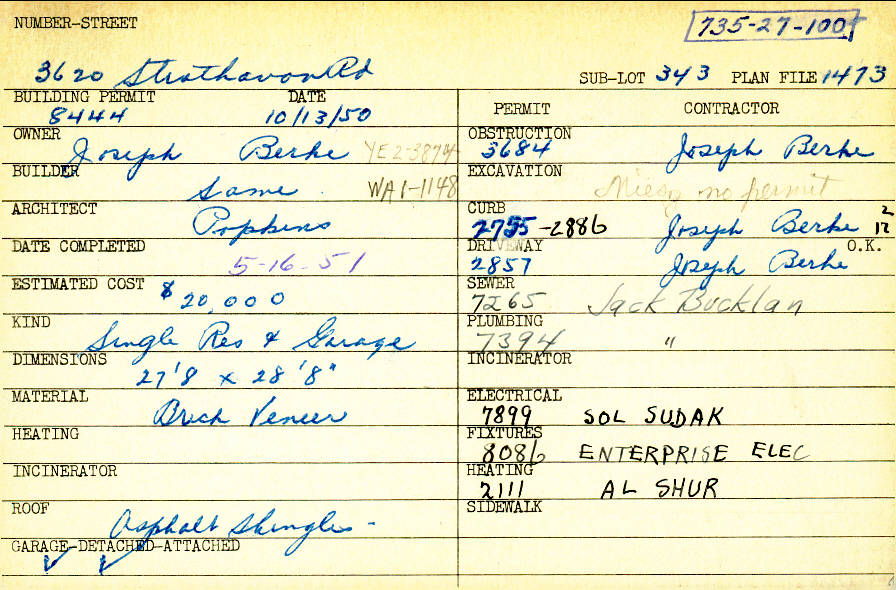 NUMBER-STREET 735-27-100
3620 Strathavon Rd SUB-LOT 343 PLAN FILE 1473
BUILDING PERMIT DATE PERMIT CONTRACTOR
8444 10/13/50
OWNER OBSTRUCTION
Joseph Berke YE 2-3874 3684 Joseph Berke
BUILDER EXCAVATION
Same WA 1-1148 no permit
ARCHITECT CURB 2
Popkins 2755-2886 Joseph Berke 12
DATE COMPLETED DRIVEWAY O.K.
5-16-51 2857 Joseph Berke
ESTIMATED COST SEWER
$20,000 7265 Jack Bucklan
KIND PLUMBING
Single Res & Garage 7394 "
DIMENSIONS INCINERATOR
27'8 x 28'8"
MATERIAL ELECTRICAL
Brick Veneer 7899 SOL SUDAK
HEATING FIXTURES
8086 ENTERPRISE ELEC
INCINERATOR HEATING
2111 AL SHUR
ROOF SIDEWALK
Asphalt Shingles -
GARAGE-DETACHED-ATTACHED